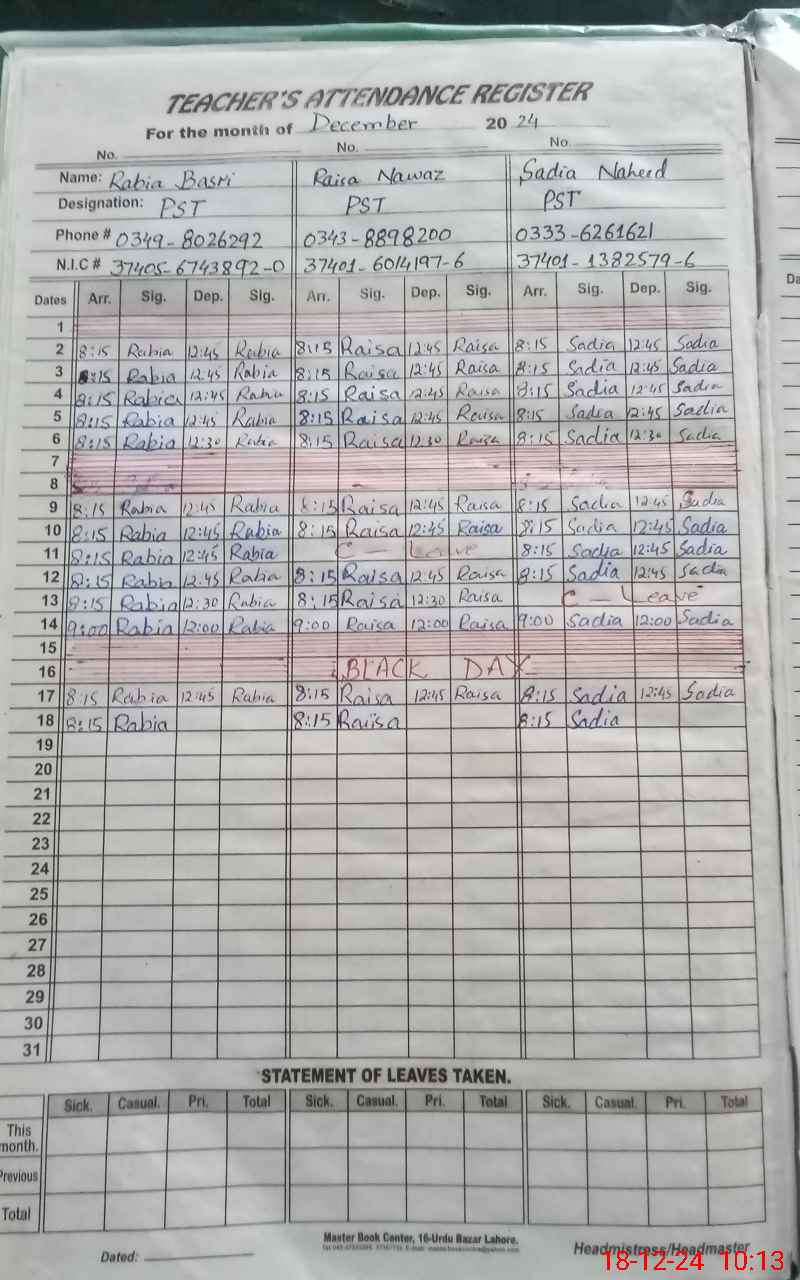 TEACHER'S ATTENDANCE REGISTER
For the month of December 2024
No. No. No.
Name: Rabia Basri Raisa Nawaz Sadia Naheed
Designation: PST PST PST
Phone # 0349-8026292 0343-8898200 0333-6261621
N.I.C # 37405-6743892-0 37401-6014197-6 37401-1382579-6
Dates Arr. Sig. Dep. Sig. Arr. Sig. Dep. Sig. Arr. Sig. Dep. Sig.
1
2 8:15 Rabia 12:45 Rabia 8:15 Raisa 12:45 Raisa 8:15 Sadia 12:45 Sadia
3 8:15 Rabia 12:45 Rabia 8:15 Raisa 12:45 Raisa 8:15 Sadia 12:45 Sadia
4 8:15 Rabia 12:45 Rabia 8:15 Raisa 12:45 Raisa 8:15 Sadia 12:45 Sadia
5 8:15 Rabia 12:45 Rabia 8:15 Raisa 12:45 Raisa 8:15 Sadia 12:45 Sadia
6 8:15 Rabia 12:30 Rabia 8:15 Raisa 12:30 Raisa 8:15 Sadia 12:30 Sadia
7
8
9 8:15 Rabia 12:45 Rabia 8:15 Raisa 12:45 Raisa 8:15 Sadia 12:45 Sadia
10 8:15 Rabia 12:45 Rabia 8:15 Raisa 12:45 Raisa 8:15 Sadia 12:45 Sadia
11 8:15 Rabia 12:45 Rabia C - Leave 8:15 Sadia 12:45 Sadia
12 8:15 Rabia 12:45 Rabia 8:15 Raisa 12:45 Raisa 8:15 Sadia 12:45 Sadia
13 8:15 Rabia 12:30 Rabia 8:15 Raisa 12:30 Raisa C - Leave
14 9:00 Rabia 12:00 Rabia 9:00 Raisa 12:00 Raisa 9:00 Sadia 12:00 Sadia
15
16 BLACK DAY
17 8:15 Rabia 12:45 Rabia 8:15 Raisa 12:45 Raisa 8:15 Sadia 12:45 Sadia
18 8:15 Rabia 8:15 Raisa 8:15 Sadia
19
20
21
22
23
24
25
26
27
28
29
30
31
STATEMENT OF LEAVES TAKEN.
Sick. Casual. Pri. Total Sick. Casual. Pri. Total Sick. Casual. Pri. Total
This month.
Previous
Total
Master Book Center, 16-Urdu Bazar Lahore.
Dated: Headmistress/Headmaster
18-12-24 10:13